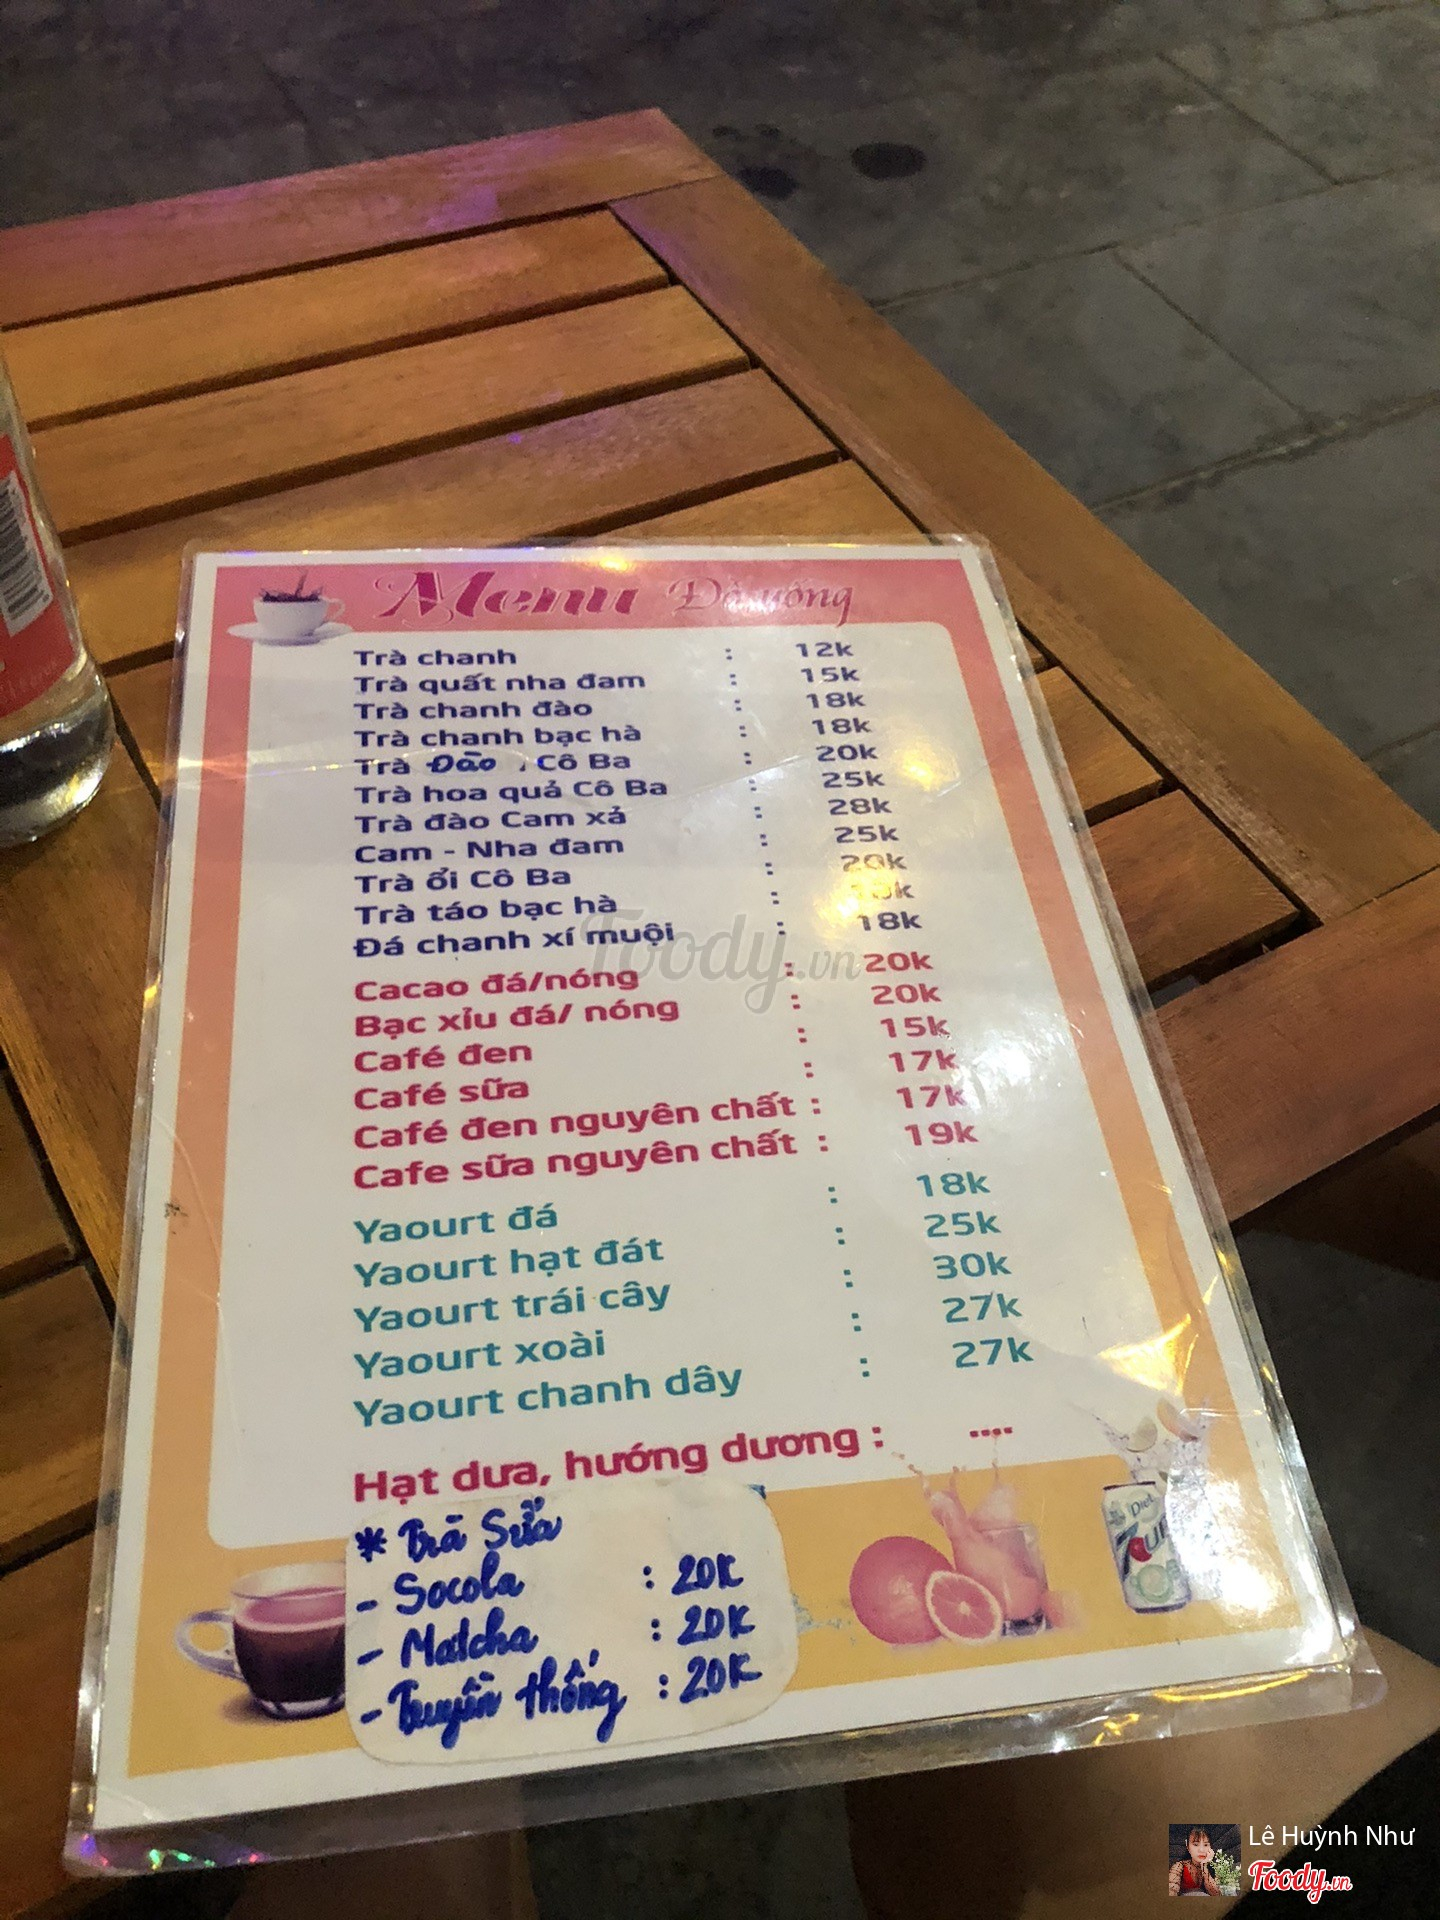 Menu Đồ uống
Trà chanh : 12k
Trà quất nha đam : 15k
Trà chanh đào : 18k
Trà chanh bạc hà : 18k
Trà Đào Cô Ba : 20k
Trà hoa quả Cô Ba : 25k
Trà đào Cam xả : 28k
Cam - Nha đam : 25k
Trà ổi Cô Ba : 20k
Trà táo bạc hà :
Đá chanh xí muội : 18k
Cacao đá/nóng : 20k
Bạc xỉu đá/ nóng : 20k
Café đen : 15k
Café sữa : 17k
Café đen nguyên chất : 17k
Cafe sữa nguyên chất : 19k
Yaourt đá : 18k
Yaourt hạt đát : 25k
Yaourt trái cây : 30k
Yaourt xoài : 27k
Yaourt chanh dây : 27k
Hạt dưa, hướng dương : ....
* Trà Sữa
- Socola : 20K
- Matcha : 20K
- Truyền thống : 20K
Diet
7up
Foody.vn
Lê Huỳnh Như
Foody.vn